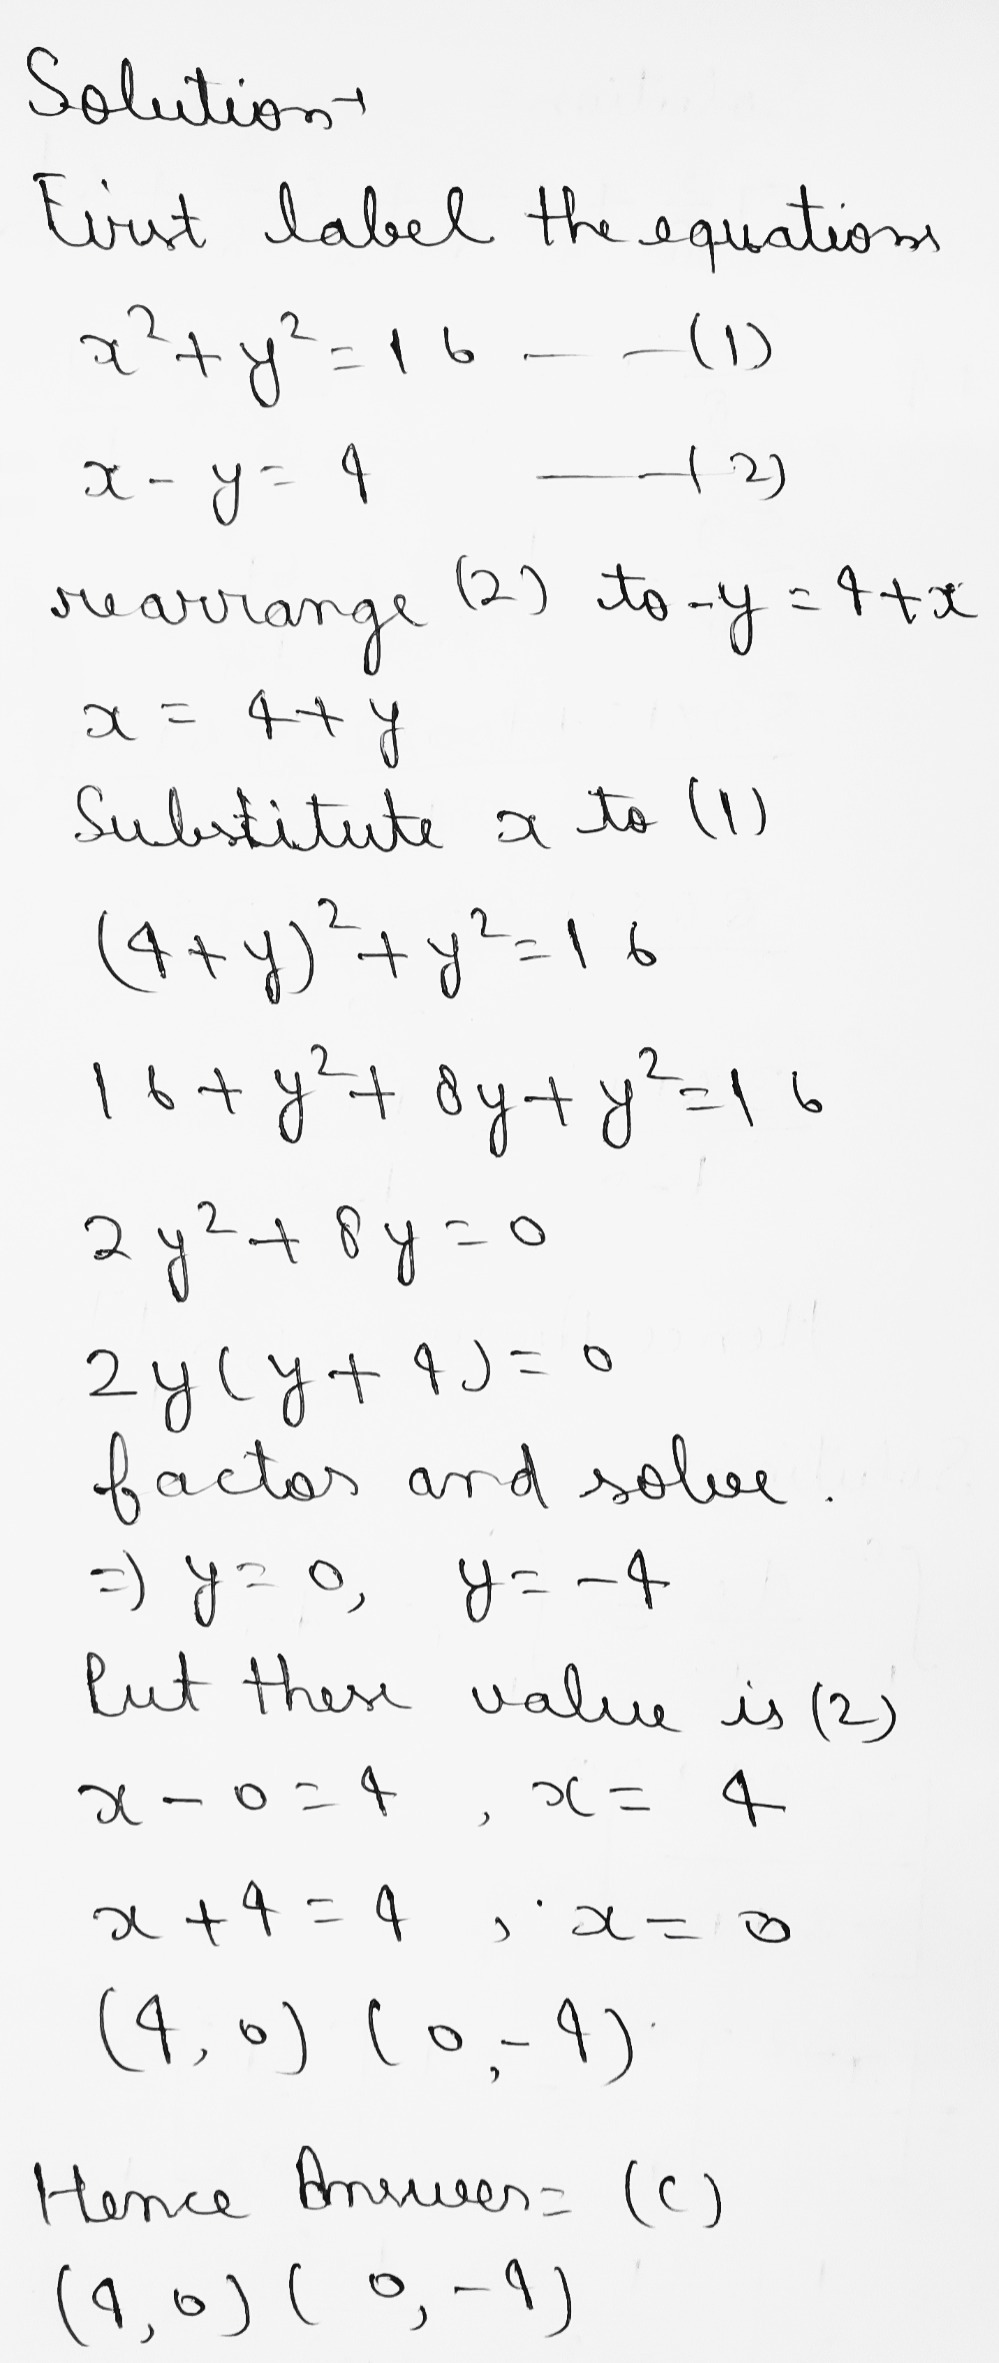 Solution→
First label the equations
x² + y² = 16 — — (1)
x - y = 4 — — (2)
rearrange (2) to -y = 4 + x
x = 4 + y
Substitute x to (1)
(4 + y)² + y² = 16
16 + y² + 8y + y² = 16
2y² + 8y = 0
2y(y + 4) = 0
factor and solve.
⇒ y = 0, y = -4
Put these value is (2)
x - 0 = 4 , x = 4
x + 4 = 4 , x = 0
(4, 0) (0, -4)
Hence Answer = (C)
(4, 0) (0, -4)